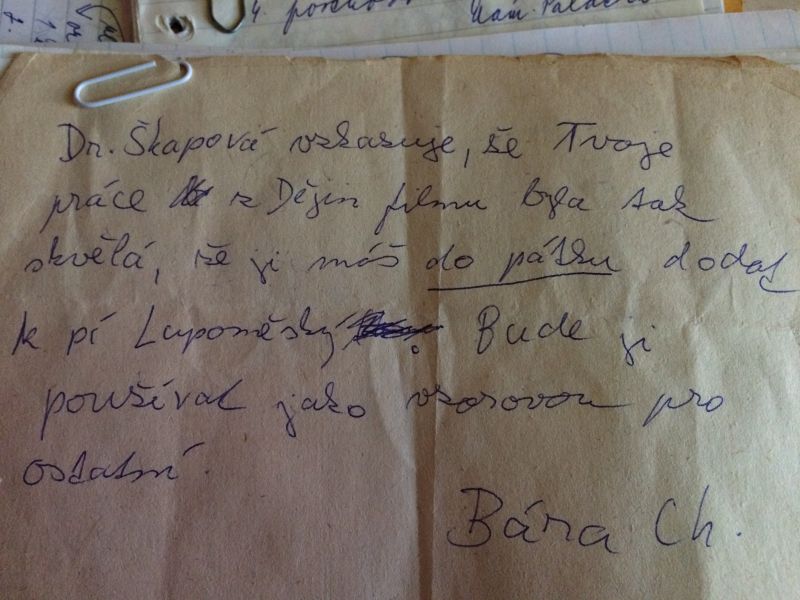 4. 
Nám. Palac
Dr. Škapová vzkazuje, že Tvoje
práce z Dějin filmu byla tak
skvělá, že ji máš do pátku dodat
k pí Lupoměský. Bude ji
používat jako vzorovou pro
ostatní.
Bára Ch.